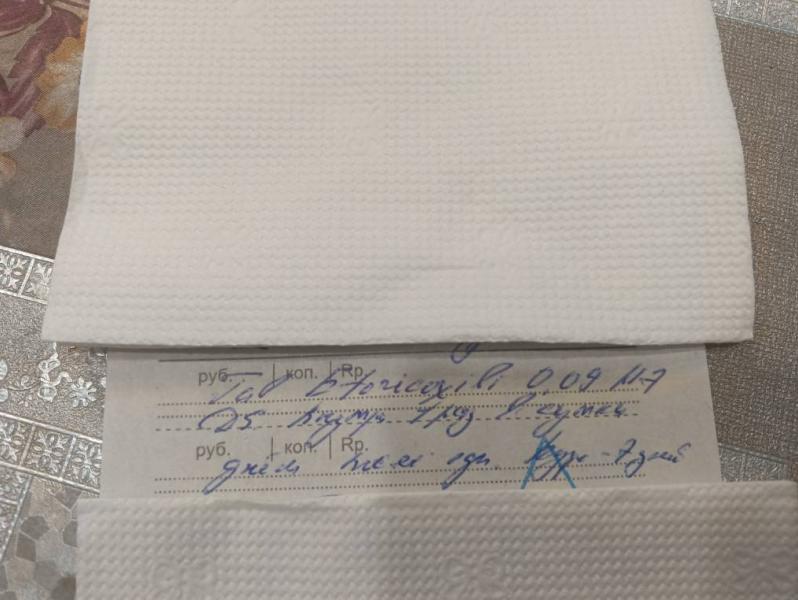 руб. | коп. | Rp.
Tab Etoricoxibi 0,09 N7
DS Внутрь 1 раз в сутки
руб. | коп. | Rp.
днём после еды. Курс - 7 дней